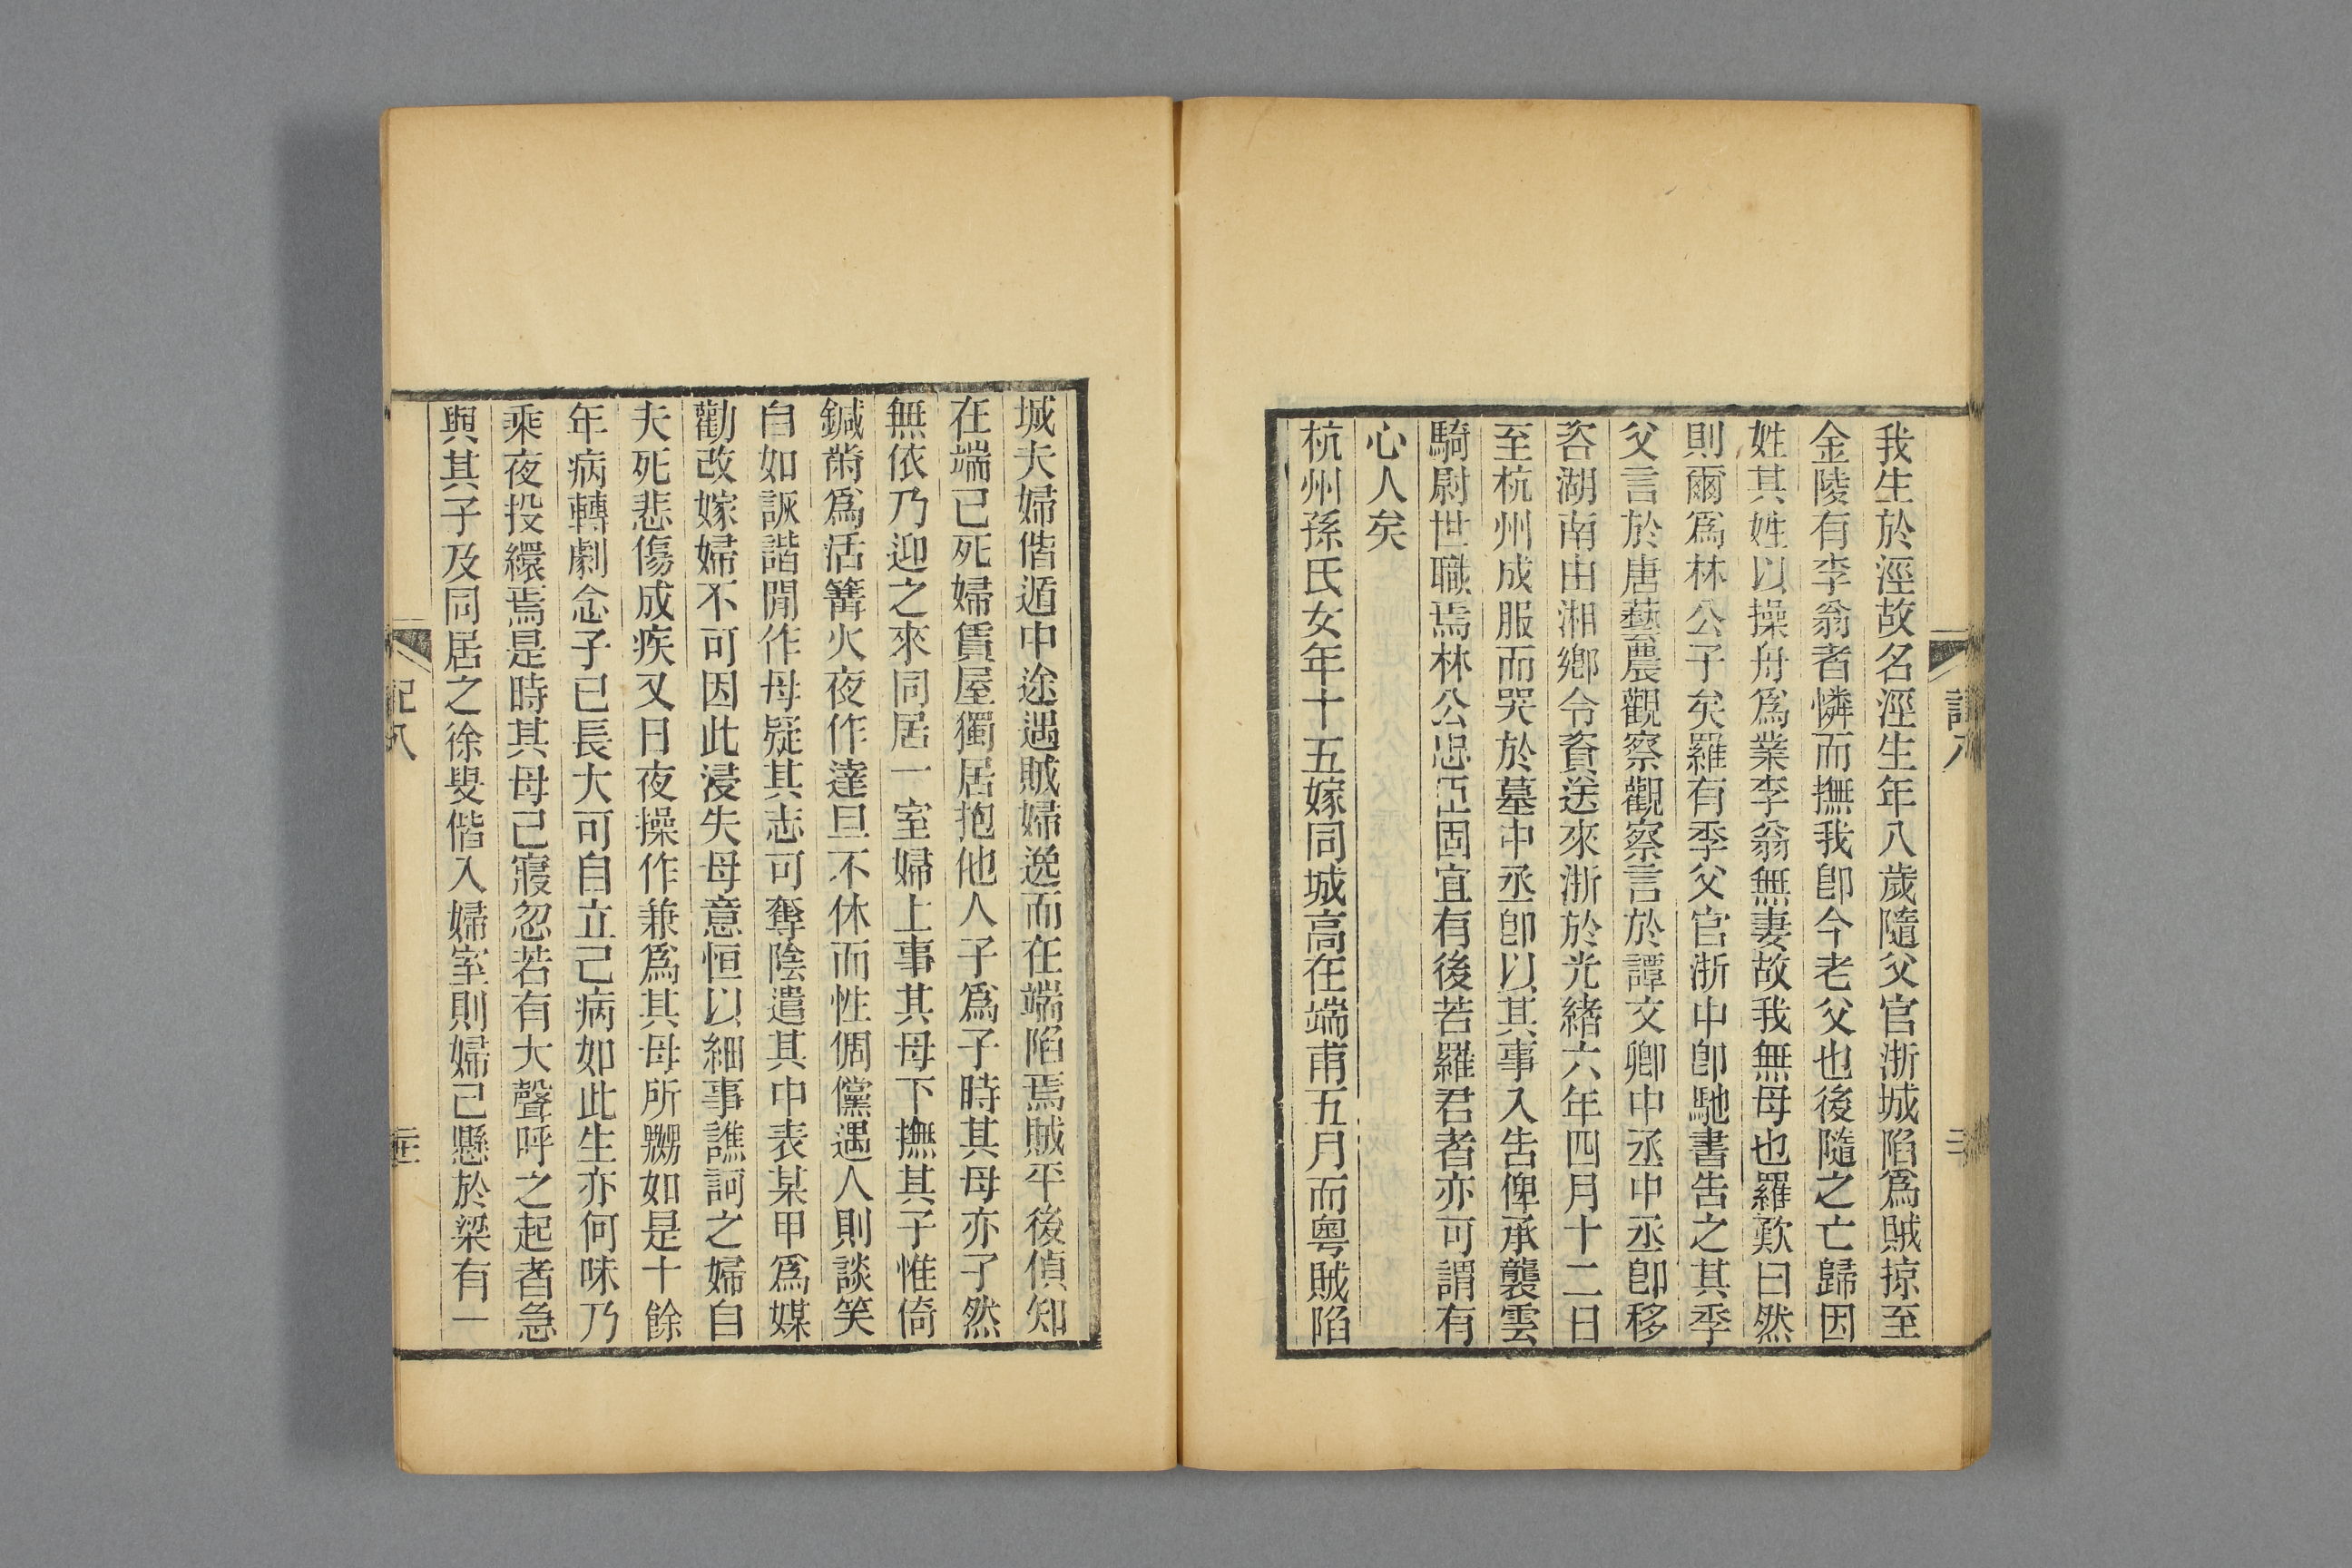 我生於涇故名涇生年八歲隨父官浙城陷爲賊掠至
金陵有李翁者憐而撫我卽今老父也後隨之亡歸因
姓其姓以操舟爲業李翁無妻故我無母也羅歎曰然
則爾爲林公子矣羅有季父官浙中卽馳書吿之其季
父言於唐藝農觀察觀察言於譚文卿中丞中丞卽移
咨湖南由湘鄉令資送來浙於光緖六年四月十二日
至杭州成服而哭於墓中丞卽以其事入吿俾承襲雲
騎尉世職焉林公忠固宜有後若羅君者亦可謂有
心人矣
杭州孫氏女年十五嫁同城高在端甫五月而粵賊陷
城夫婦偕遁中途遇賊婦逸而在端陷焉賊平後偵知
在端已死婦賃屋獨居抱他人子爲子時其母亦孑然
無依乃迎之來同居一室婦上事其母下撫其子惟倚
鍼黹爲活篝火夜作達旦不休而性倜儻遇人則談笑
自如詼諧閒作母疑其志可奪陰遣其中表某甲爲媒
勸改嫁婦不可因此浸失母意恒以細事譙訶之婦自
夫死悲傷成疾又日夜操作兼爲其母所嬲如是十餘
年病轉劇念子已長大可自立己病如此生亦何味乃
乘夜投繯焉是時其母已寢忽若有大聲呼之起者急
與其子及同居之徐叟偕入婦室則婦已懸於梁有一
記八